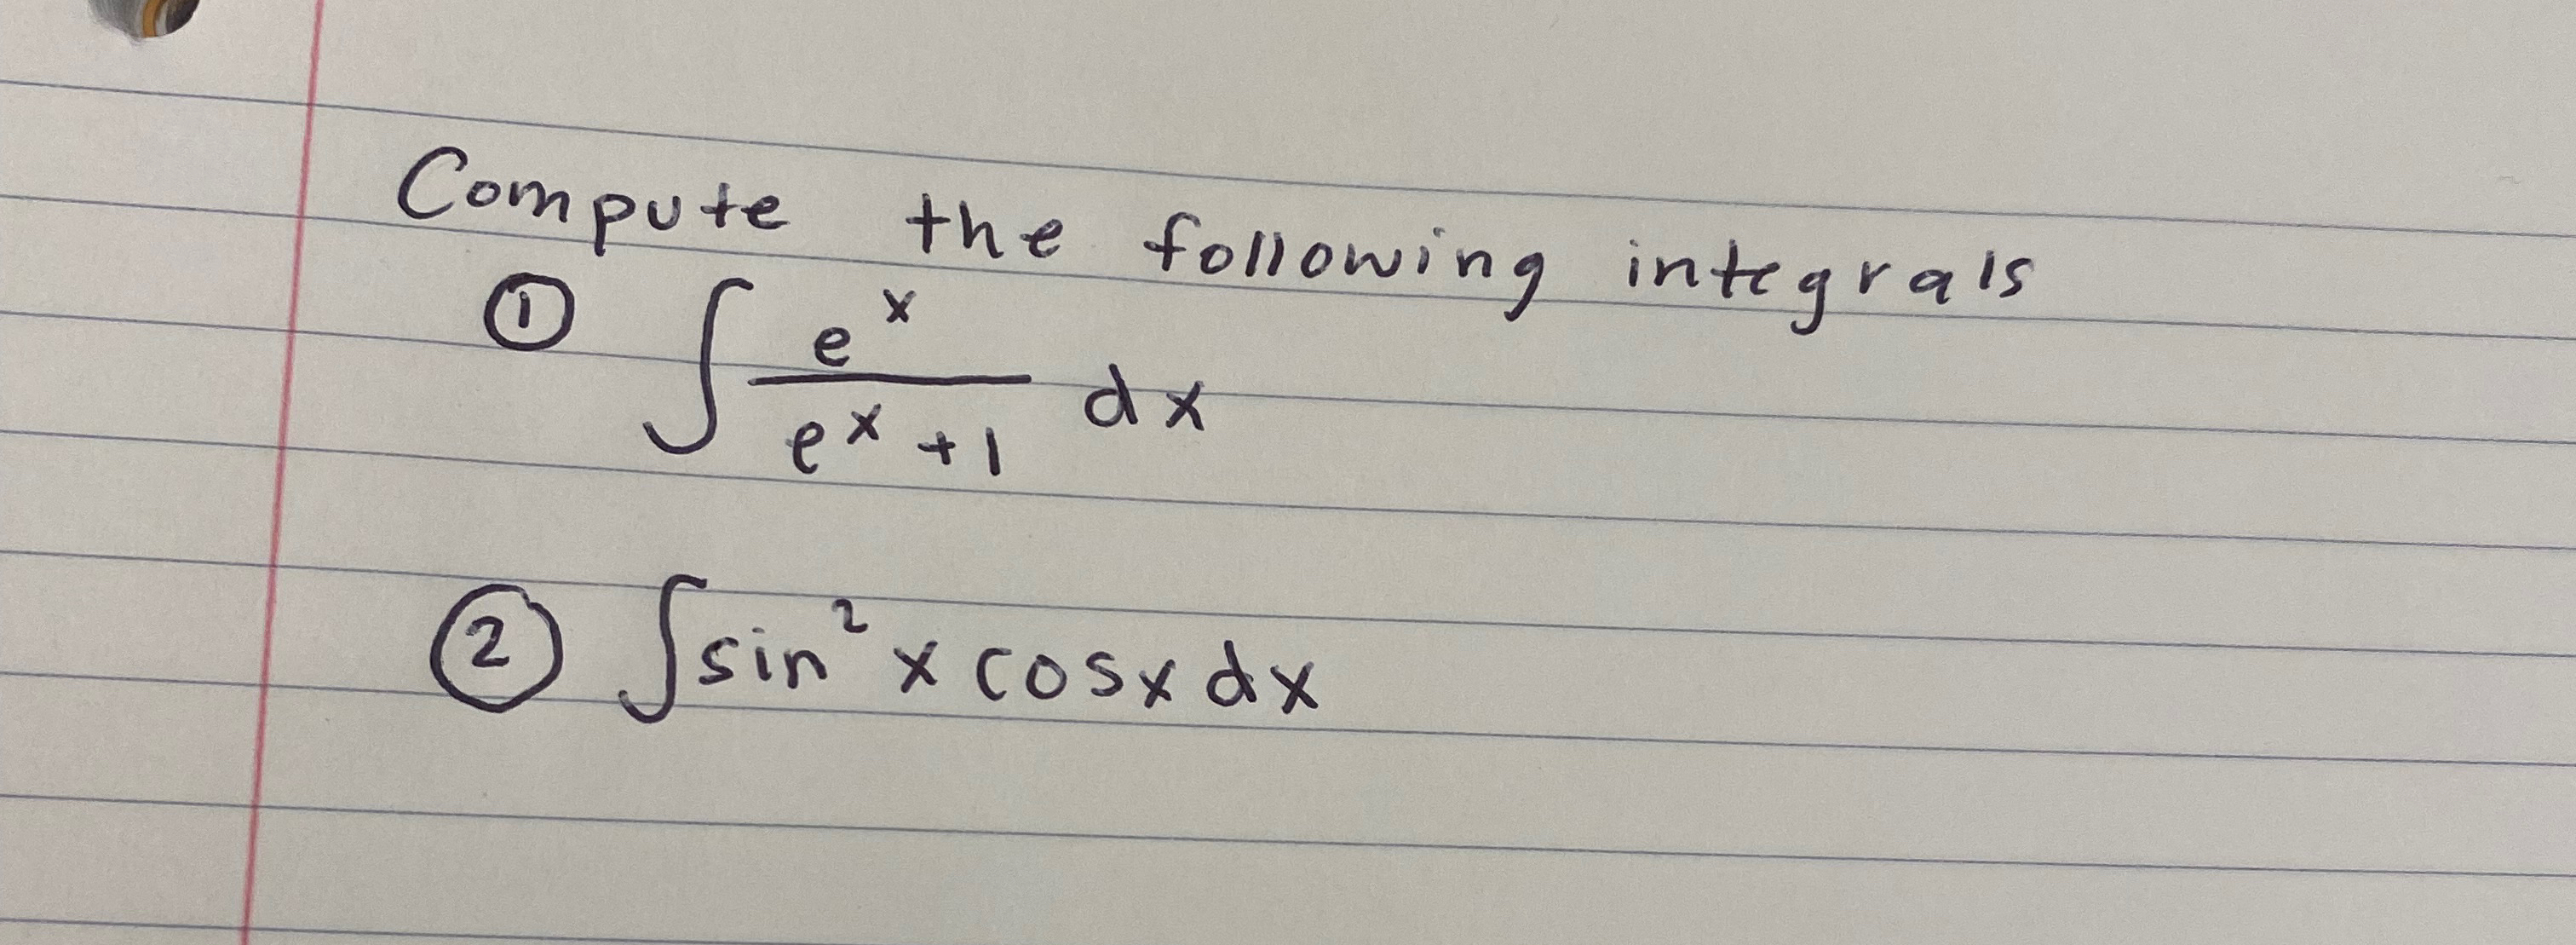 Compute the following integrals
① ∫ e^x / (e^x + 1) dx
② ∫ sin² x cosx dx